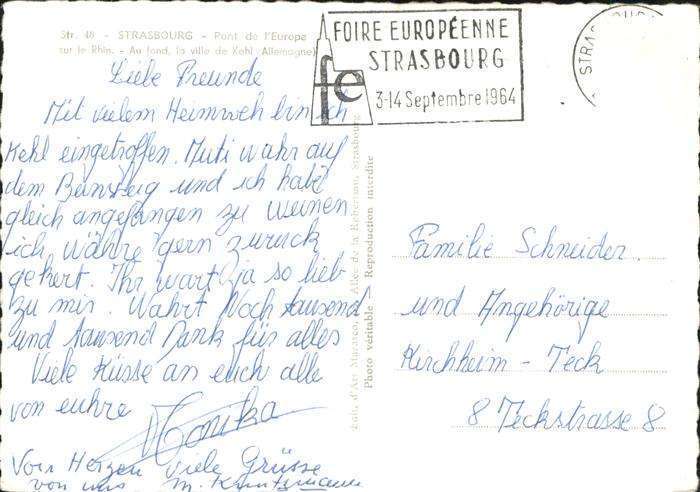 Str. 40 - STRASBOURG - Pont de l'Europe
sur le Rhin. - Au fond, la ville de Kehl (Allemagne)
FOIRE EUROPÉENNE
STRASBOURG
fe
3-14 Septembre 1964
STRASBOURG
Liebe Freunde
Mit vielem Heimweh bin ich
Kehl eingetroffen. Muti wahr auf
dem Bahnsteig und ich habe
gleich angefangen zu weinen
ich währe gern zurück
gekert. Ihr wart ja so lieb
zu mir. Wahrt Noch tausend
und tausend Dank für alles
Viele Küsse an euch alle
von euhre Monika
Von Herzen viele Grüsse
von uns. M.
Edit. d'Art Allée de la Robertsau, Strasbourg
Photo véritable - Reproduction interdite
Familie Schneider.
und Angehörige
Kirchheim - Teck
8 Teckstrasse 8